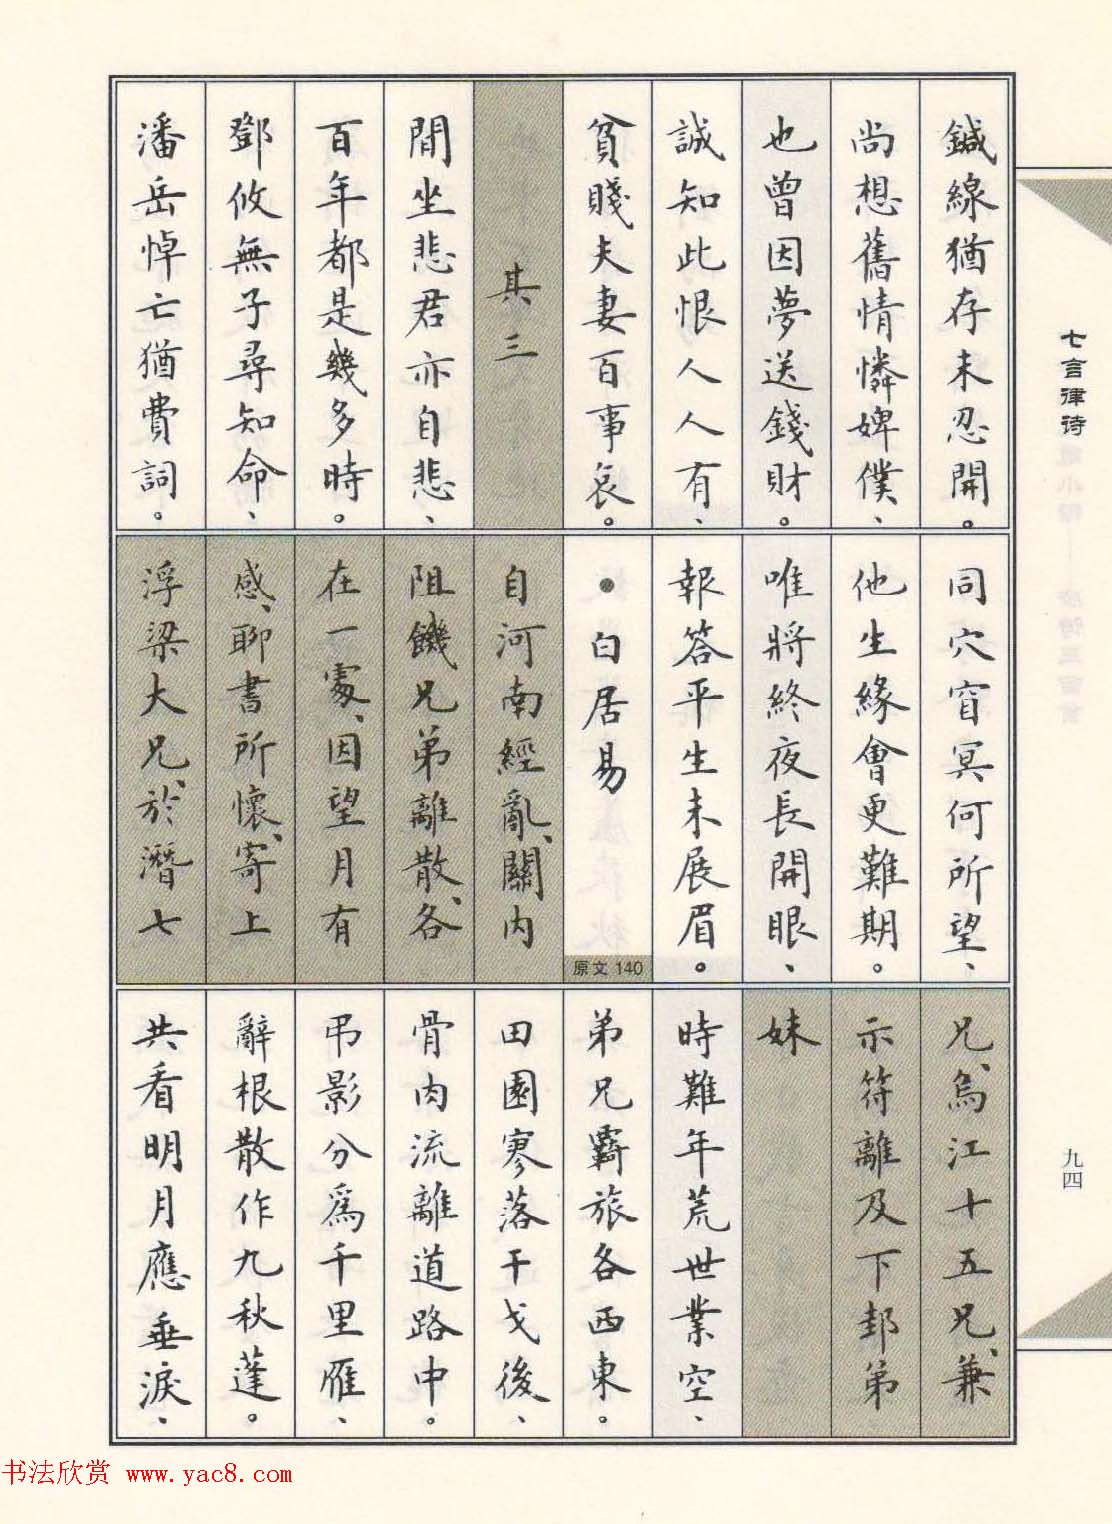 鍼線猶存未忍開。
尚想舊情憐婢僕、
也曾因夢送錢財。
誠知此恨人人有、
貧賤夫妻百事哀。
其三
閒坐悲君亦自悲、
百年都是幾多時。
鄧攸無子尋知命、
潘岳悼亡猶費詞。
同穴窅冥何所望、
他生緣會更難期。
唯將終夜長開眼、
報答平生未展眉。
•白居易
原文 140
自河南經亂、關內
阻饑兄弟離散、各
在一處、因望月有
感、聊書所懷、寄上
浮梁大兄、於潛七
兄、烏江十五兄、兼
示符離及下邽弟
妹
時難年荒世業空、
弟兄羇旅各西東。
田園寥落干戈後、
骨肉流離道路中。
弔影分為千里雁、
辭根散作九秋蓬。
共看明月應垂淚、
七言律诗
九四
书法欣赏 www.yac8.com